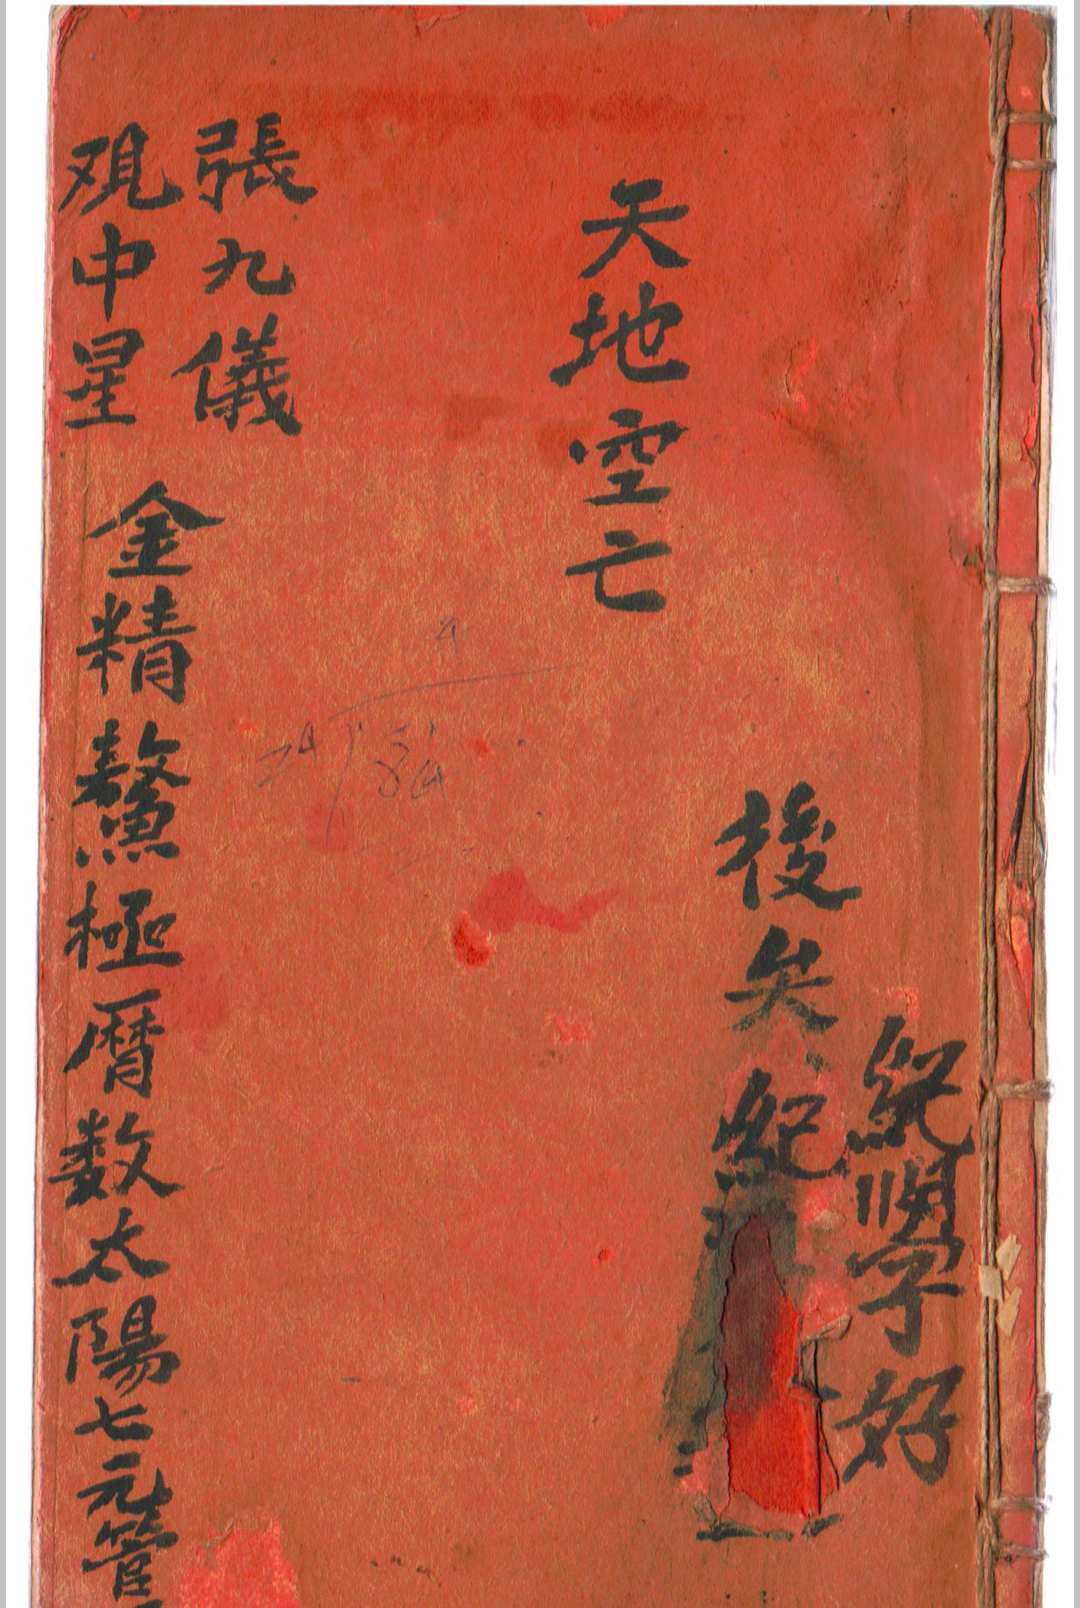 紀順字好
後矣紀
天地空亡
張九儀
观中星
金精鰲極曆数太陽七元管
24 84